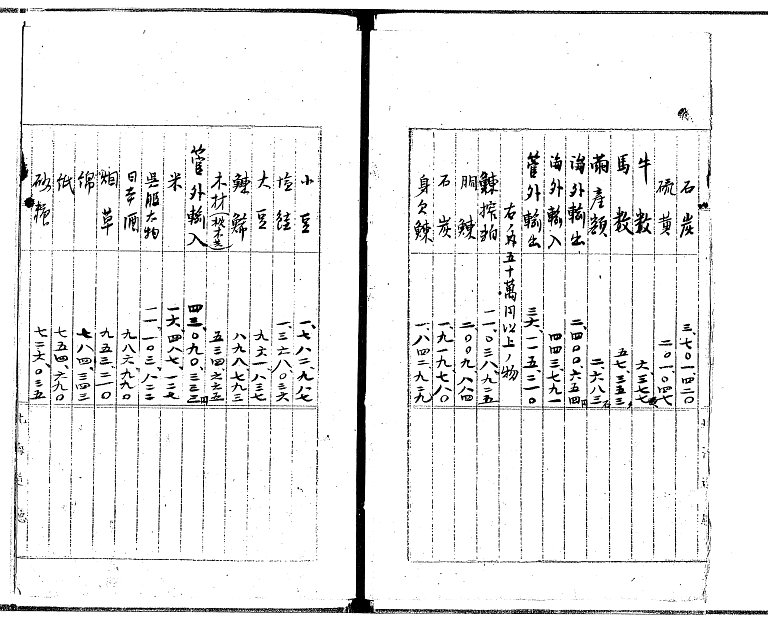 石炭 三、七〇一四二〇
硫黄 二〇一〇四七
牛数 六三七七
馬数 五七三五三
繭産額 二六八三石
海外輸出 二、四〇〇六五四円
海外輸入 四四三七九一
管外輸出 三六、一一五二一〇
右ノ内五十萬円以上ノ物
鰊搾粕 一一、〇三八九二五
胴鰊 二〇〇九八八四
石炭 一、九一九七八〇
身欠鰊 一、八四二九二九
小豆 一、七八二九八七
塩鮭 一、三六八〇三六
大豆 九六一八三七
鰊鯑 八九八七九三
木材 五三四二六五
管外輸入 四三、〇九〇、三三三円
米 一六、四八七、一三七
呉服太物 一一、一〇三、八三二
日本酒 九八六、九九〇
烟草 九五三二一〇
綿 七八四、三四三
紙 七五四、六九〇
砂糖 七二六〇三五
北海道廳